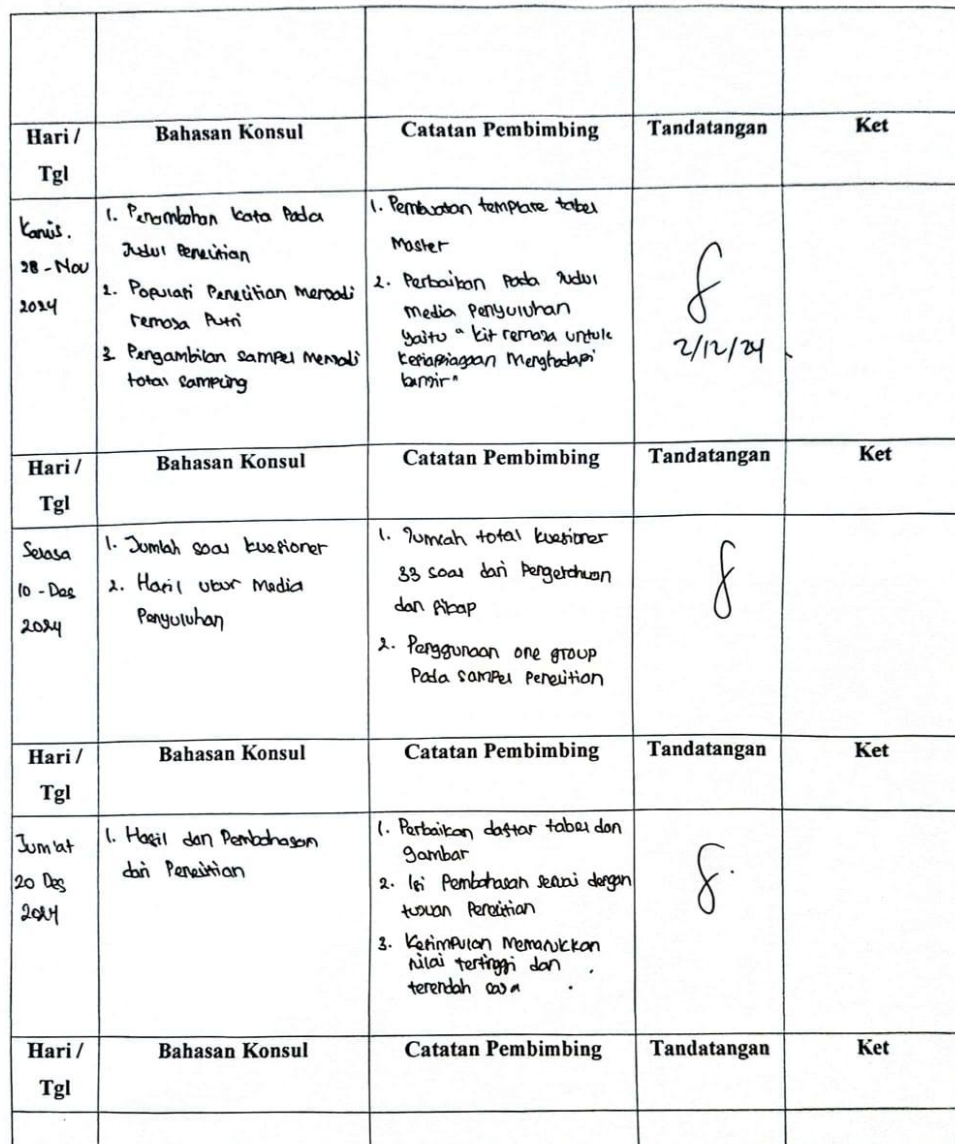 Hari / Bahasan Konsul Catatan Pembimbing Tandatangan Ket
Tgl
Kamis.
28 - Nov
2024
1. Penambahan kata Pada
Judul Penelitian
2. Populasi Penelitian menjadi
remaja Putri
3. Pengambilan sampel menjadi
total sampling
1. Pembuatan template tabel
Master
2. Perbaikan Pada Judul
media Penyuluhan
yaitu " kit remaja untuk
kesiapsiagaan Menghadapi
banjir "
2/12/24
Hari / Bahasan Konsul Catatan Pembimbing Tandatangan Ket
Tgl
Selasa
10 - Des
2024
1. Jumlah soal kuesioner
2. Hasil ukur Media
Penyuluhan
1. Jumlah total kuesioner
33 soal dari Pengetahuan
dan sikap
2. Penggunaan one group
Pada sampel Penelitian
Hari / Bahasan Konsul Catatan Pembimbing Tandatangan Ket
Tgl
Jum'at
20 Des
2024
1. Hasil dan Pembahasan
dari Penelitian
1. Perbaikan daftar tabel dan
gambar
2. Isi Pembahasan sesuai dengan
tujuan Penelitian
3. Kesimpulan Memasukkan
nilai tertinggi dan
terendah saja
Hari / Bahasan Konsul Catatan Pembimbing Tandatangan Ket
Tgl